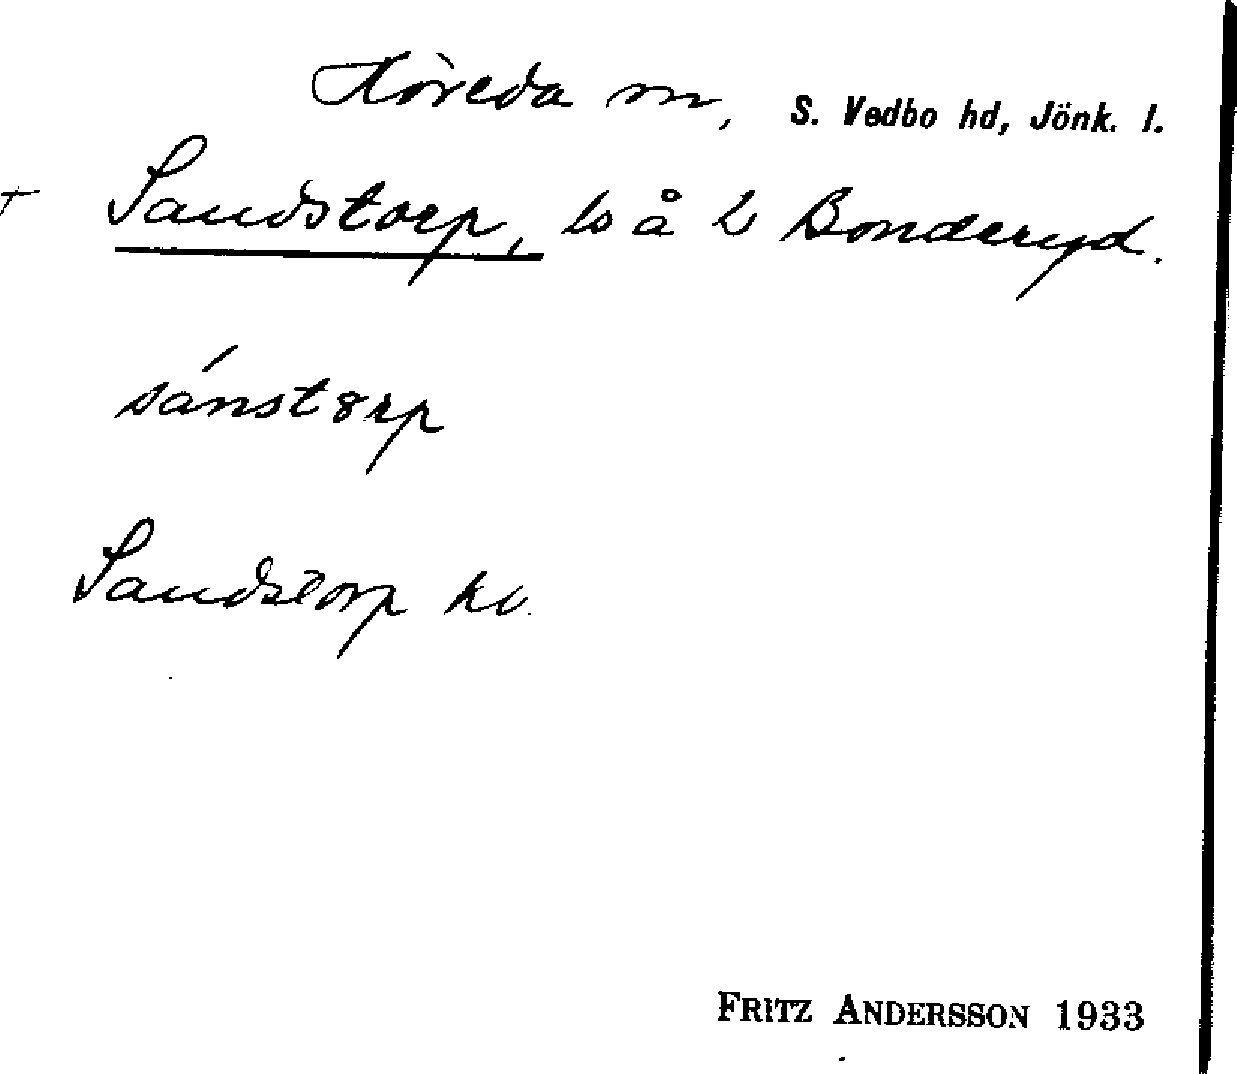 Höreda sn, S. Vedbo hd, Jönk. l.
+ Sandstorp, ls å L Bonderyd.
sánstorp
Sandstorp kv.
FRITZ ANDERSSON 1933